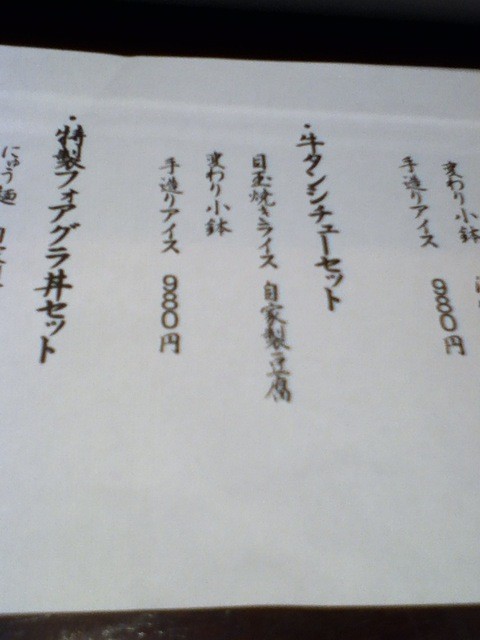 変わり小鉢
手造りアイス 980円
・牛タンシチューセット
目玉焼きライス 自家製豆腐
変わり小鉢
手造りアイス 980円
・特製フォアグラ丼セット
にゅう麺